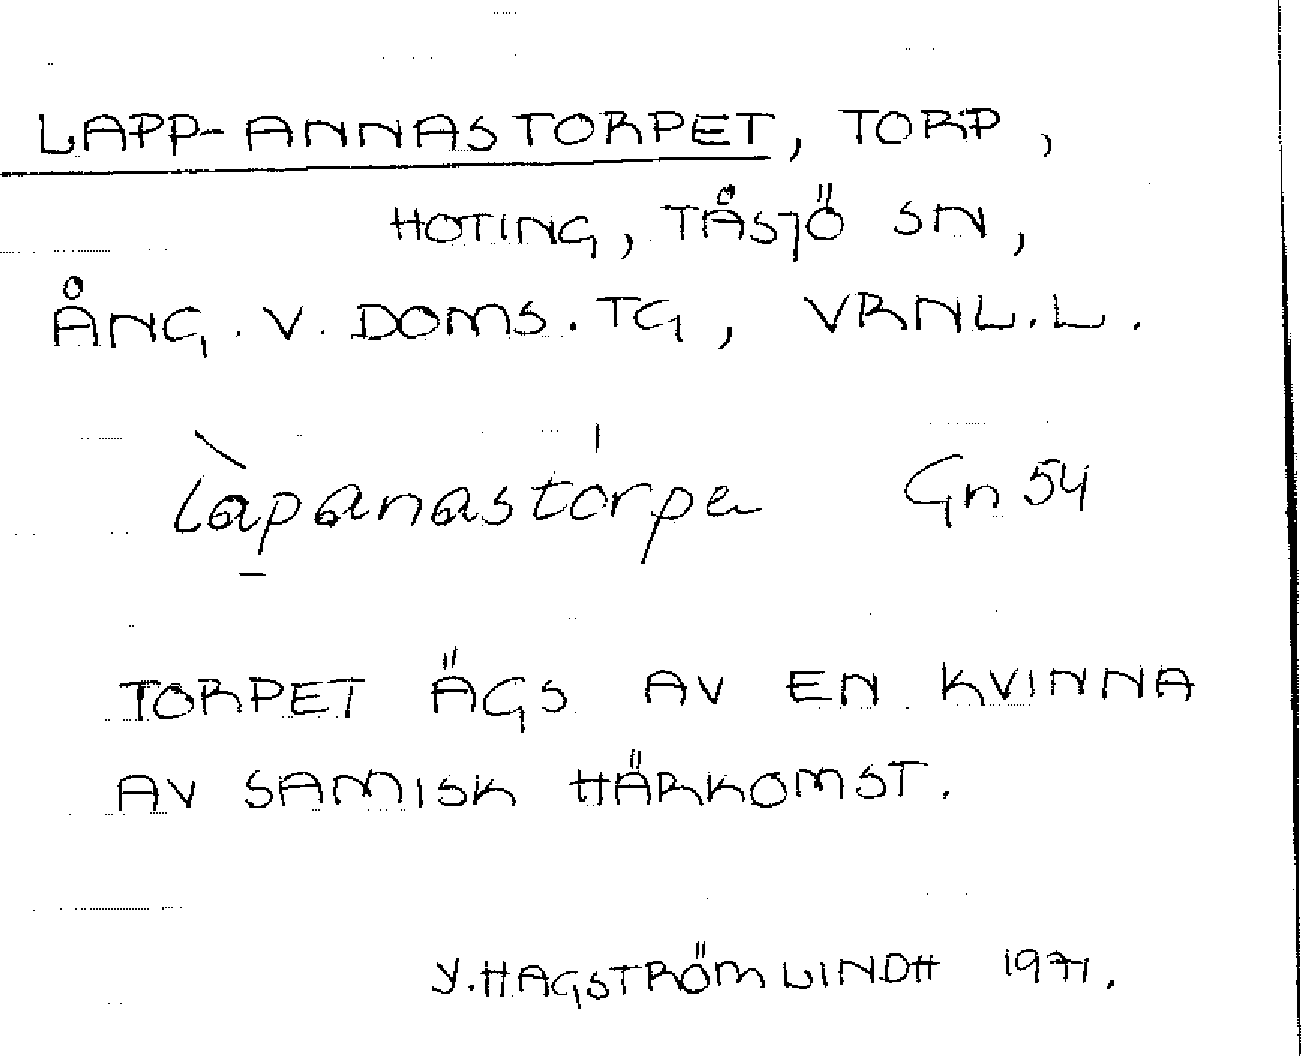 LAPP-ANNASTORPET, TORP,
HOTING, TÅSJÖ SN,
ÅNG. V. DOMS. TG, VRNL.L.
lapanastorpe Gn 54
TORPET ÄGS AV EN KVINNA
AV SAMISK HÄRKOMST.
Y. HAGSTRÖM LINDH 1971.